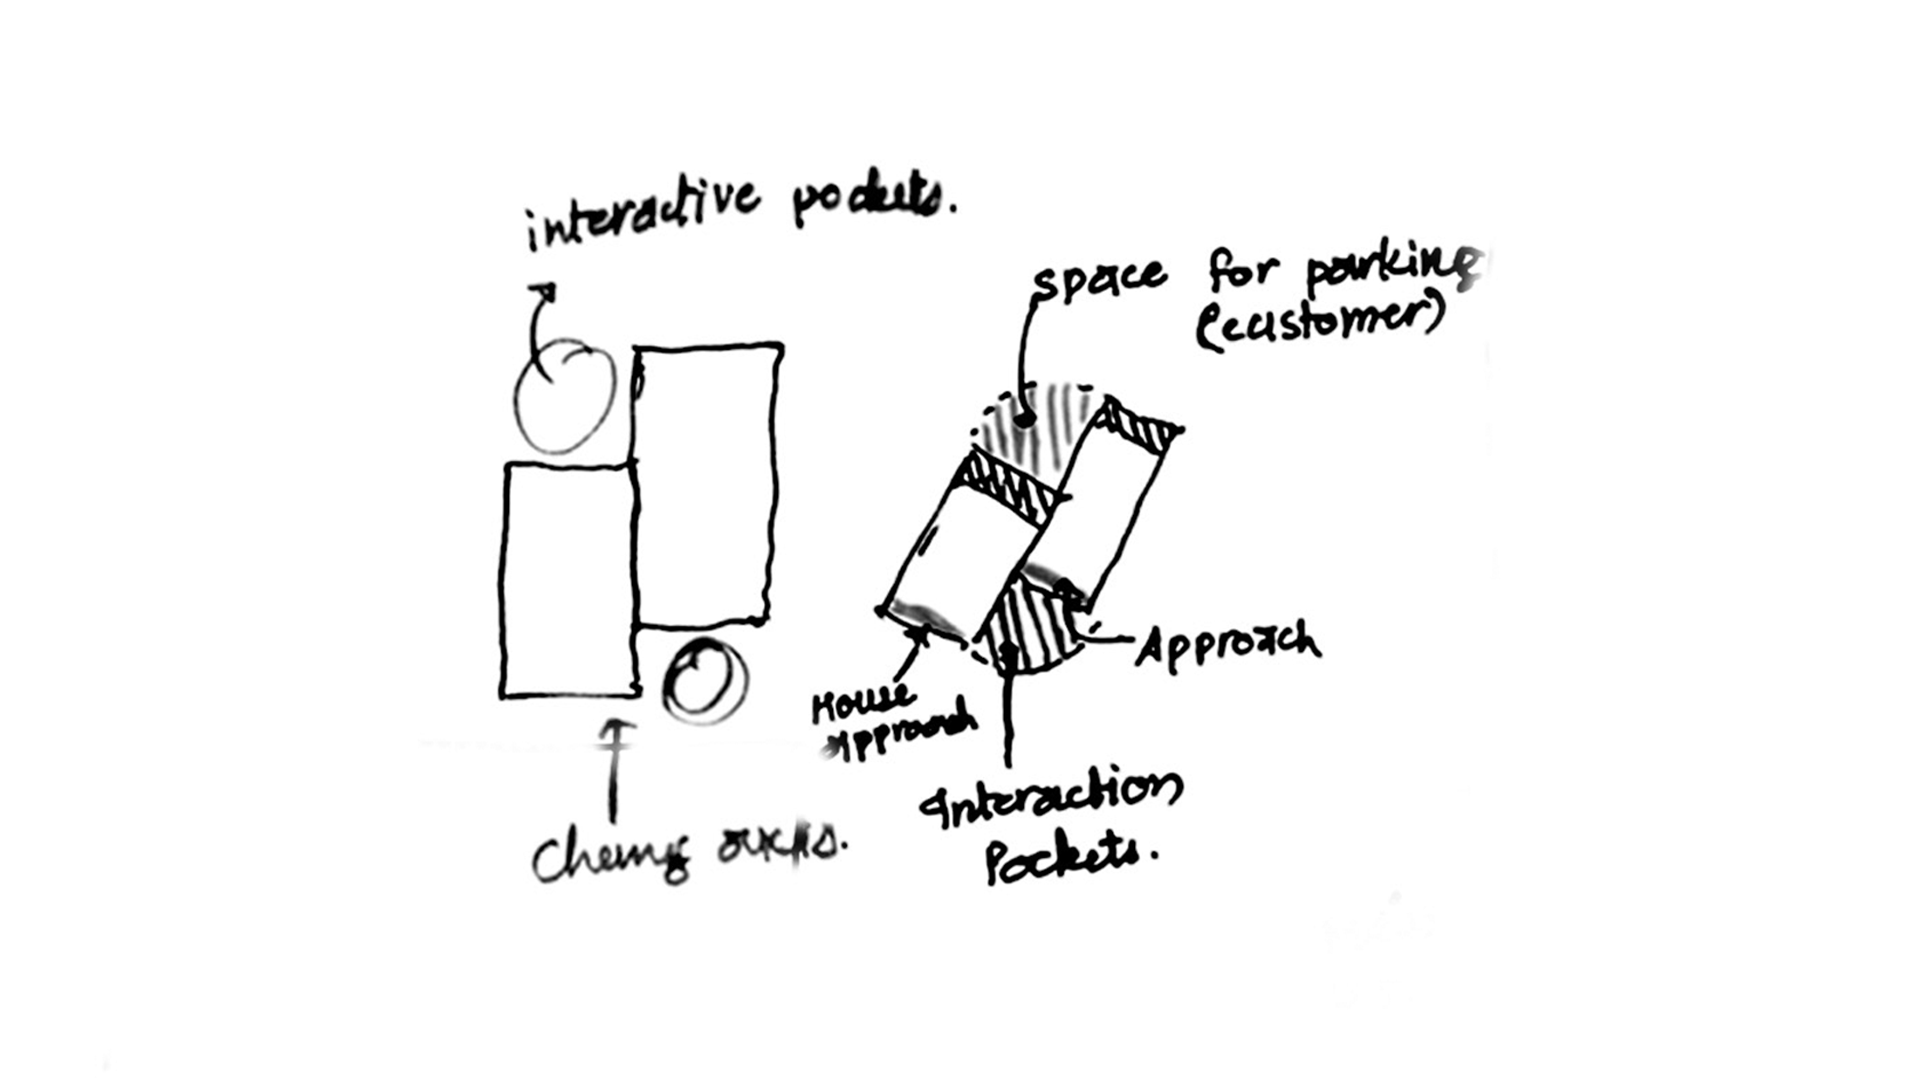 interactive pockets.
space for parking
(customer)
Approach
House
Approach
Interaction
Pockets.